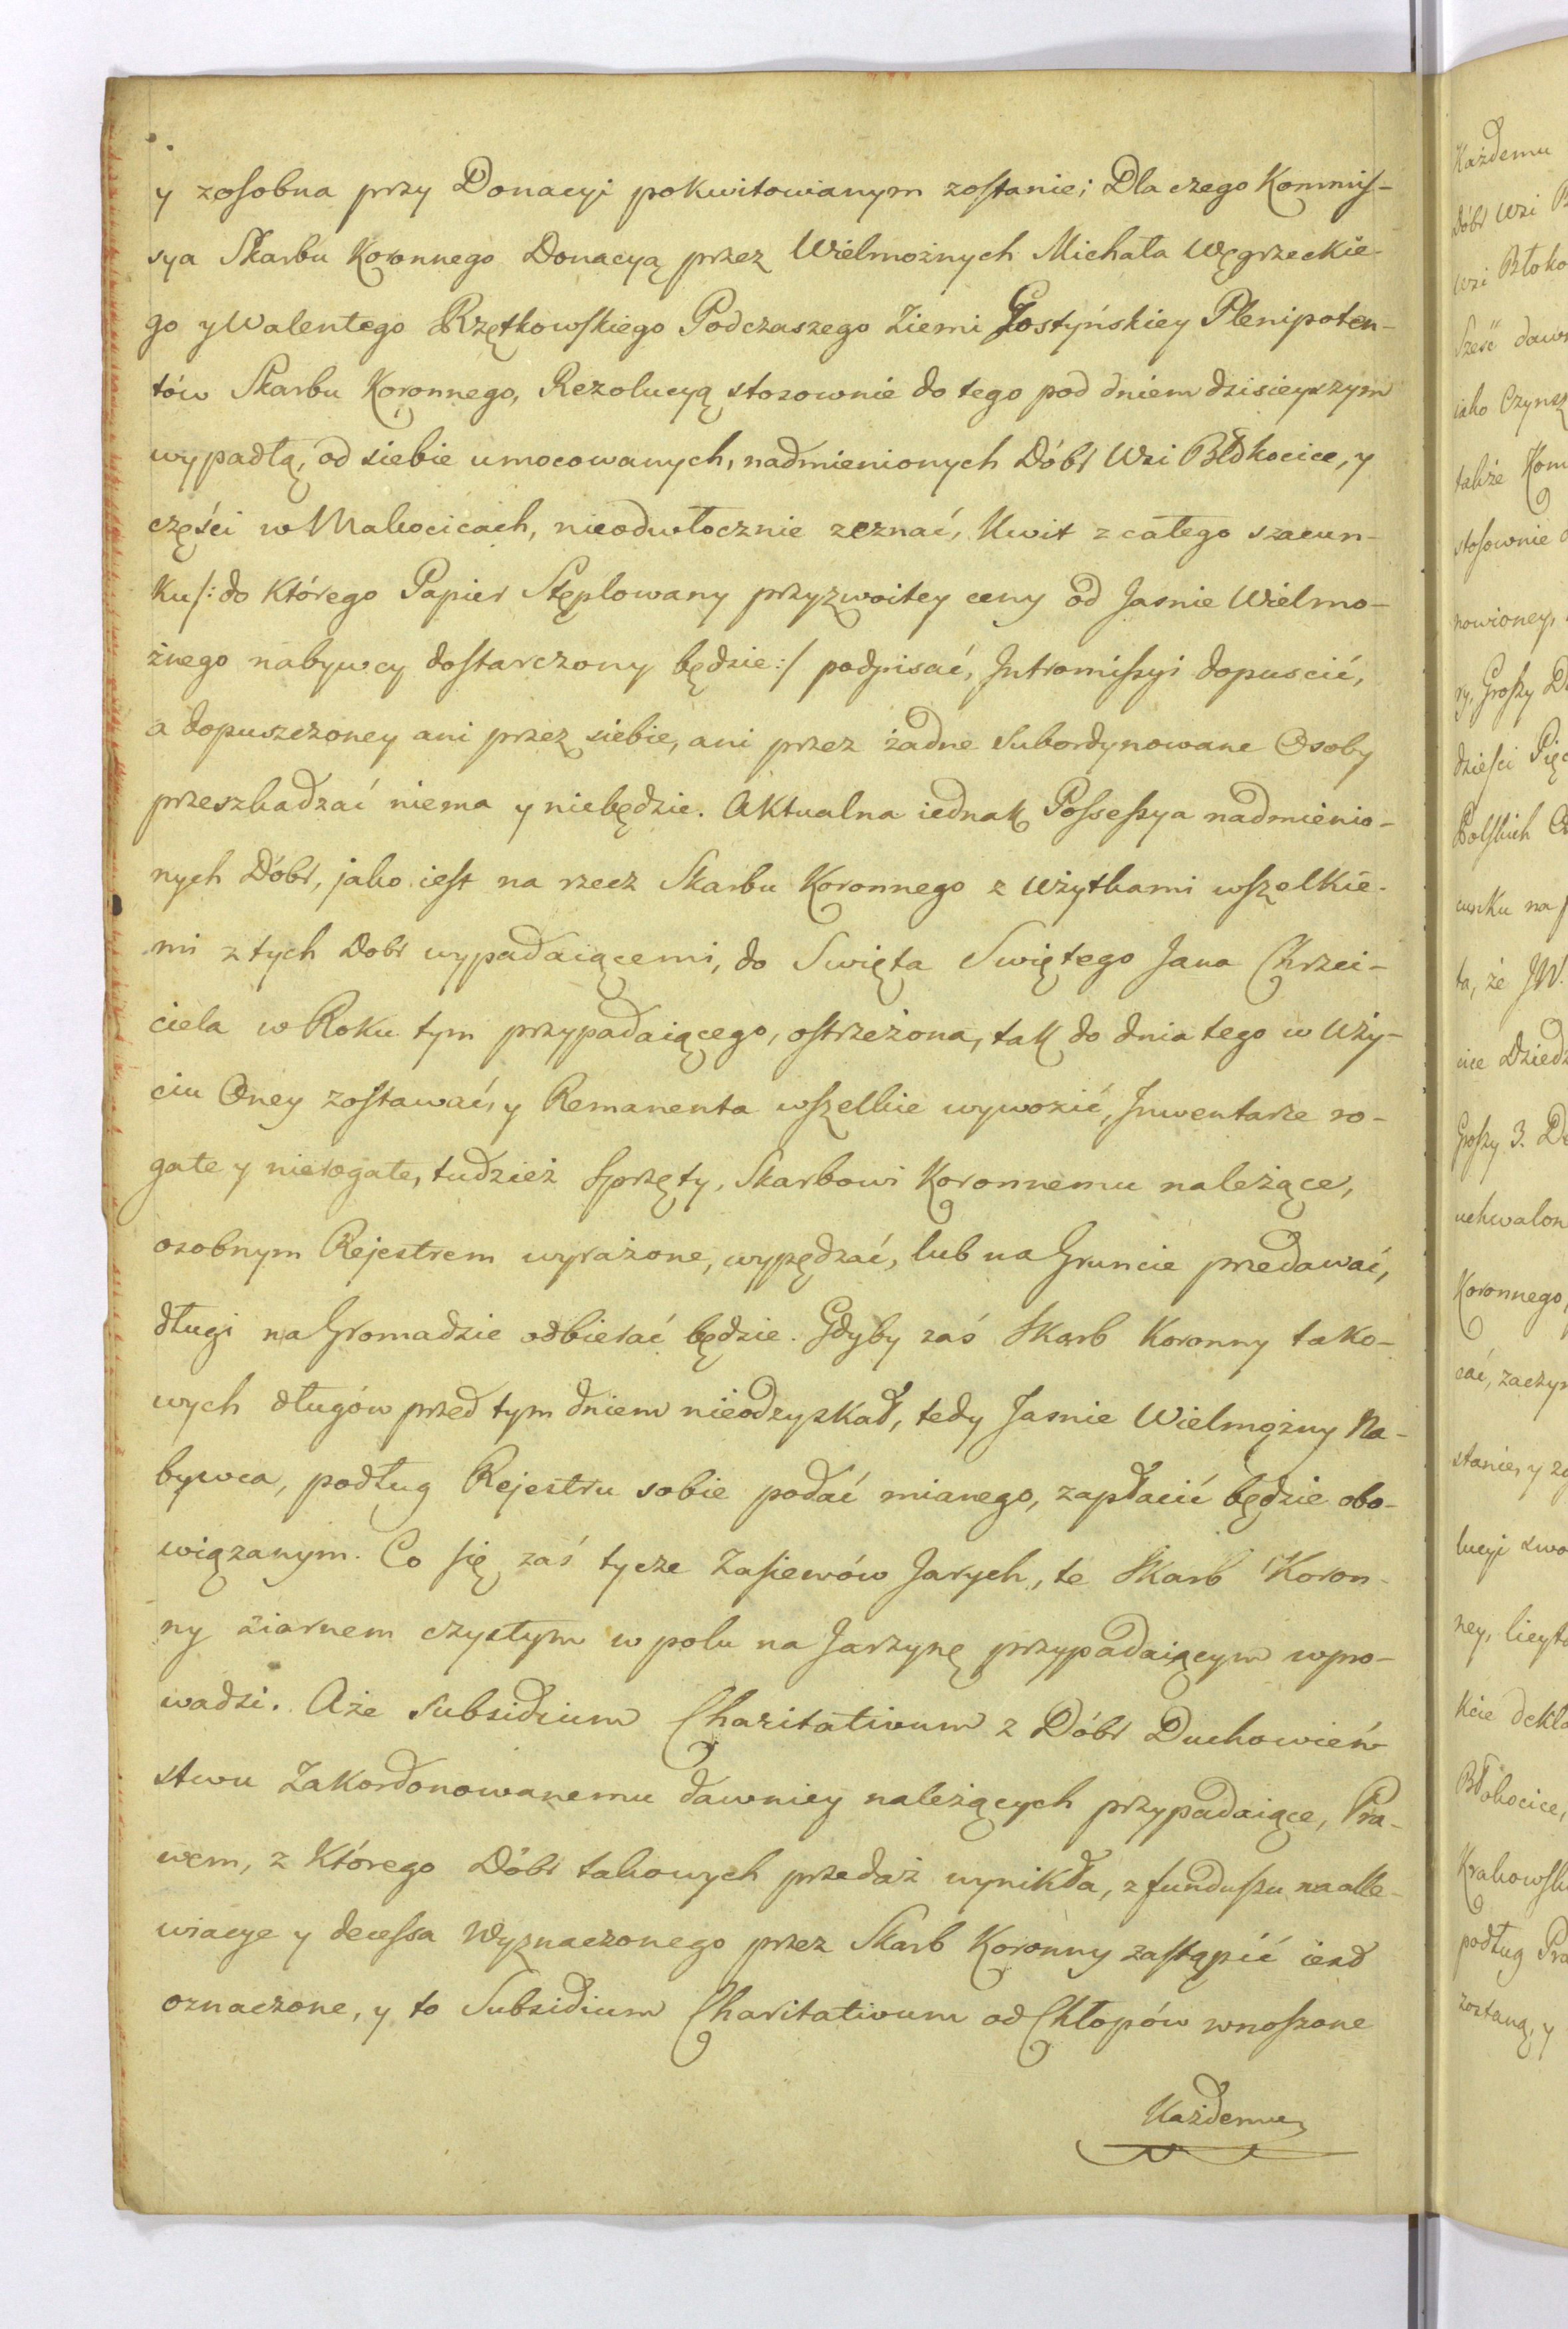 y zosobna przy Donacyi pokwitowianym zostanie; Dla czego Kommis-
sya Skarbu Koronnego Donacyą przez Wielmożnych Michała Węgrzeckie-
go y Walentego Rzętkowskiego Podczaszego Ziemi Gostyńskiey Plenipoten-
tów Skarbu Koronnego, Rezolucyą stosownie do tego pod dniem dzisieyszym
wypadłą, od siebie umocowanych, nadmienionych Dóbr Wsi Błokocice, y
części w Makocicach, nieodwłocznie zeznać, Kwit z całego szacun-
ku /: do którego Papier Stęplowany przyzwoitey ceny od Jasnie Wielmo-
żnego nabywcy dostarczony będzie :/ podpisać, Intromissyi dopuscić,
a dopuszczoney ani przez siebie, ani przez żadne Subordynowane Osoby
przeszkadzać niema y niebędzie. Aktualna iednak Possessya nadmienio-
nych Dóbr, jako iest na rzecz Skarbu Koronnego z Użytkami wszelkie-
mi z tych Dobr wypadaiącemi, do Swięta Swiętego Jana Chrzci-
ciela w Roku tym przypadaiącego, ostrzeżona, tak do dnia tego w Uży-
ciu Oney zostawać, y Remanenta wszelkie wywozić, Inwentarze ro-
gate y nierogate, tudzież Sprzęty, Skarbowi Koronnemu należące,
osobnym Rejestrem wyrażone, wypędzać, lub na Gruncie przedawać,
długi na Gromadzie odbierać będzie. Gdyby zaś Skarb Koronny tako-
wych długów przed tym dniem nieodzyskał, tedy Jasnie Wielmożny Na-
bywca, podług Rejestru sobie podać mianego, zapłacić będzie obo-
wiązanym. Co się zaś tycze Zasiewów Jarych, te Skarb Koron-
ny ziarnem czystym w polu na Jarzynę przypadaiącym wpro-
wadzi. Aże Subsidium Charitativum z Dóbr Duchowień
stwu Zakordonowanemu dawniey należących przypadaiące, Pra-
wem, z którego Dóbr takowych przedaż wynikła, z funduszu na alle-
wiacye y decessa Wyznaczonego przez Skarb Koronny zastąpić iest
oznaczone, y to Subsidium Charitativum od Chłopów wnoszone
Każdemu
Każdemu
Dóbr Wsi
Wsi Błoko
Sześć daw
iako Czynsz
także Kom
stosownie
nowioney,
ry, Groszy
dziesci Pięć
Polskich
unku na
ta, że JW.
cice Dziedz
Groszy 3.
uchwalon
Koronnego
cać, zaczym
stanie, y
lucyi swo
ney, licyta
Kcie dekla
Błokocice,
Krakowsk
podług Pra
zostaną, y